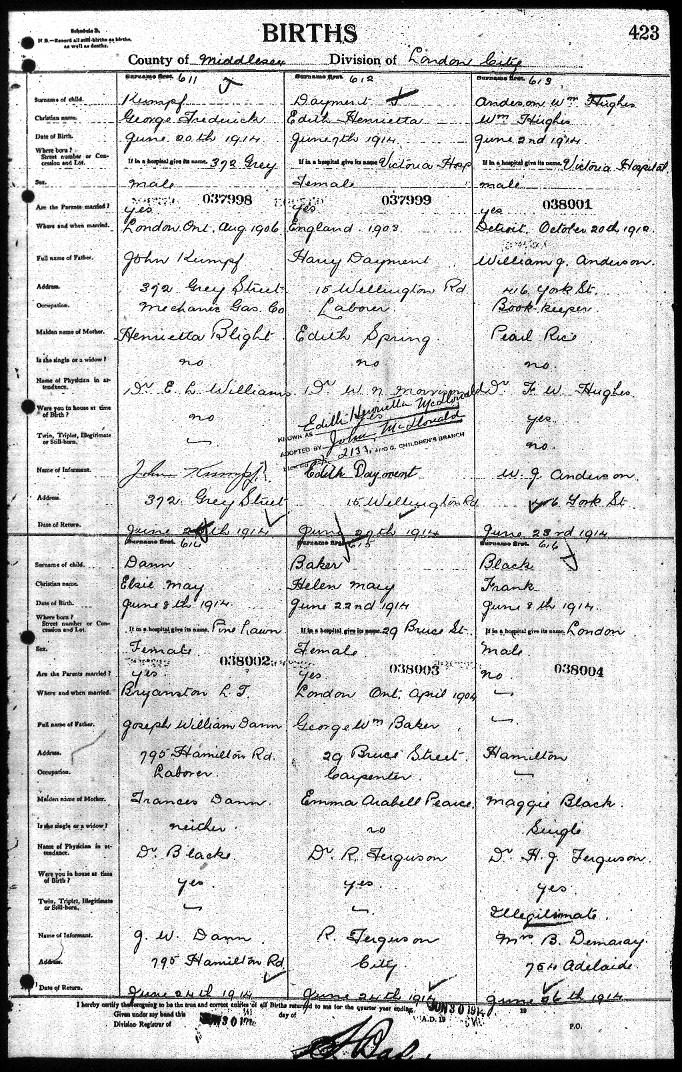 Schedule B.
N B.—Record all still-births as births, as well as deaths.
BIRTHS
423
County of Middlesex Division of London City
Surname first. 611
Surname first. 612
Surname first. 613
Surname of child.
Kumpf
Dayment
Anderson Wm Hughes
Christian name.
George Frederick
Edith Henrietta
Wm Hughes
Date of Birth.
June 20th 1914
June 7th 1914
June 2nd 1914
Where born? Street number or Concession and Lot.
If in a hospital give its name. 372 Grey
If in a hospital give its name Victoria Hosp
If in a hospital give its name. Victoria Hospital
Sex.
male
Female
male
037998
037999
038001
Are the Parents married?
yes
yes
yes
Where and when married.
London Ont. Aug 1906
England 1903
Detroit October 20th
Full name of Father.
John Kumpf
Harry Dayment
William J. Anderson.
Address.
372 Grey Street
15 Wellington Rd
416 York St.
Occupation.
Mechanic Gas. Co
Laborer
Book-keeper
Maiden name of Mother.
Henrietta Blight
Edith Spring
Pearl Rice
Is she single or a widow?
no
no
no.
Name of Physician in attendance.
Dr E. L. Williams
Dr W N Morrison
Dr F. W. Hughes
Were you in house at time of Birth?
no
yes
yes.
KNOWN AS Edith Henrietta McDonald
ADOPTED BY John McDonald
AND G. CHILDREN'S BRANCH
Twin, Triplet, Illegitimate or Still-born.
no.
Name of Informant.
John Kumpf
Edith Dayment
W. J. Anderson
Address
372 Grey Street
15 Wellington Rd
York St
Date of Return.
June 1914
June 27th 1914
June 23rd 1914
Surname first. 614
Surname first. 615
Surname first. 616
Surname of child.
Dann
Baker
Black
Christian name.
Elsie May
Helen Mary
Frank
Date of Birth.
June 8th 1914
June 22nd 1914
June 8th 1914
Where born? Street number or Concession and Lot.
If in a hospital give its name. Pine Lawn
If in a hospital give its name 29 Bruce St.
If in a hospital give its name. London
Sex.
Female
Female
Male
038002
038003
038004
Are the Parents married?
yes
yes
no
Where and when married.
Bryanston
London Ont. April 1904
Full name of Father.
Joseph William Dann
George Wm Baker
Address.
795 Hamilton Rd.
29 Bruce Street.
Hamilton
Occupation.
Laborer
Carpenter
Maiden name of Mother.
Frances Dann.
Emma Arabell Pearce.
Maggie Black.
Is she single or a widow?
neither.
no
Single
Name of Physician in attendance.
Dr Black
Dr. R. Ferguson
Dr H. J. Ferguson.
Were you in house at time of Birth?
yes.
yes.
yes.
Twin, Triplet, Illegitimate or Still-born.
Illegitimate.
Name of Informant.
J. W. Dann
R. Ferguson
Mrs B. Demaray.
Address.
795 Hamilton Rd
City
754 Adelaide
Date of Return.
June 24th 1914
June 24th 1914
June 26th 1914
I hereby certify the foregoing to be the true and correct entries of all Births returned to me for the quarter year ending. JUN 30 1914 19
Given under my hand this JUN 30 day of A.D. 19
Division Registrar of
P.O.